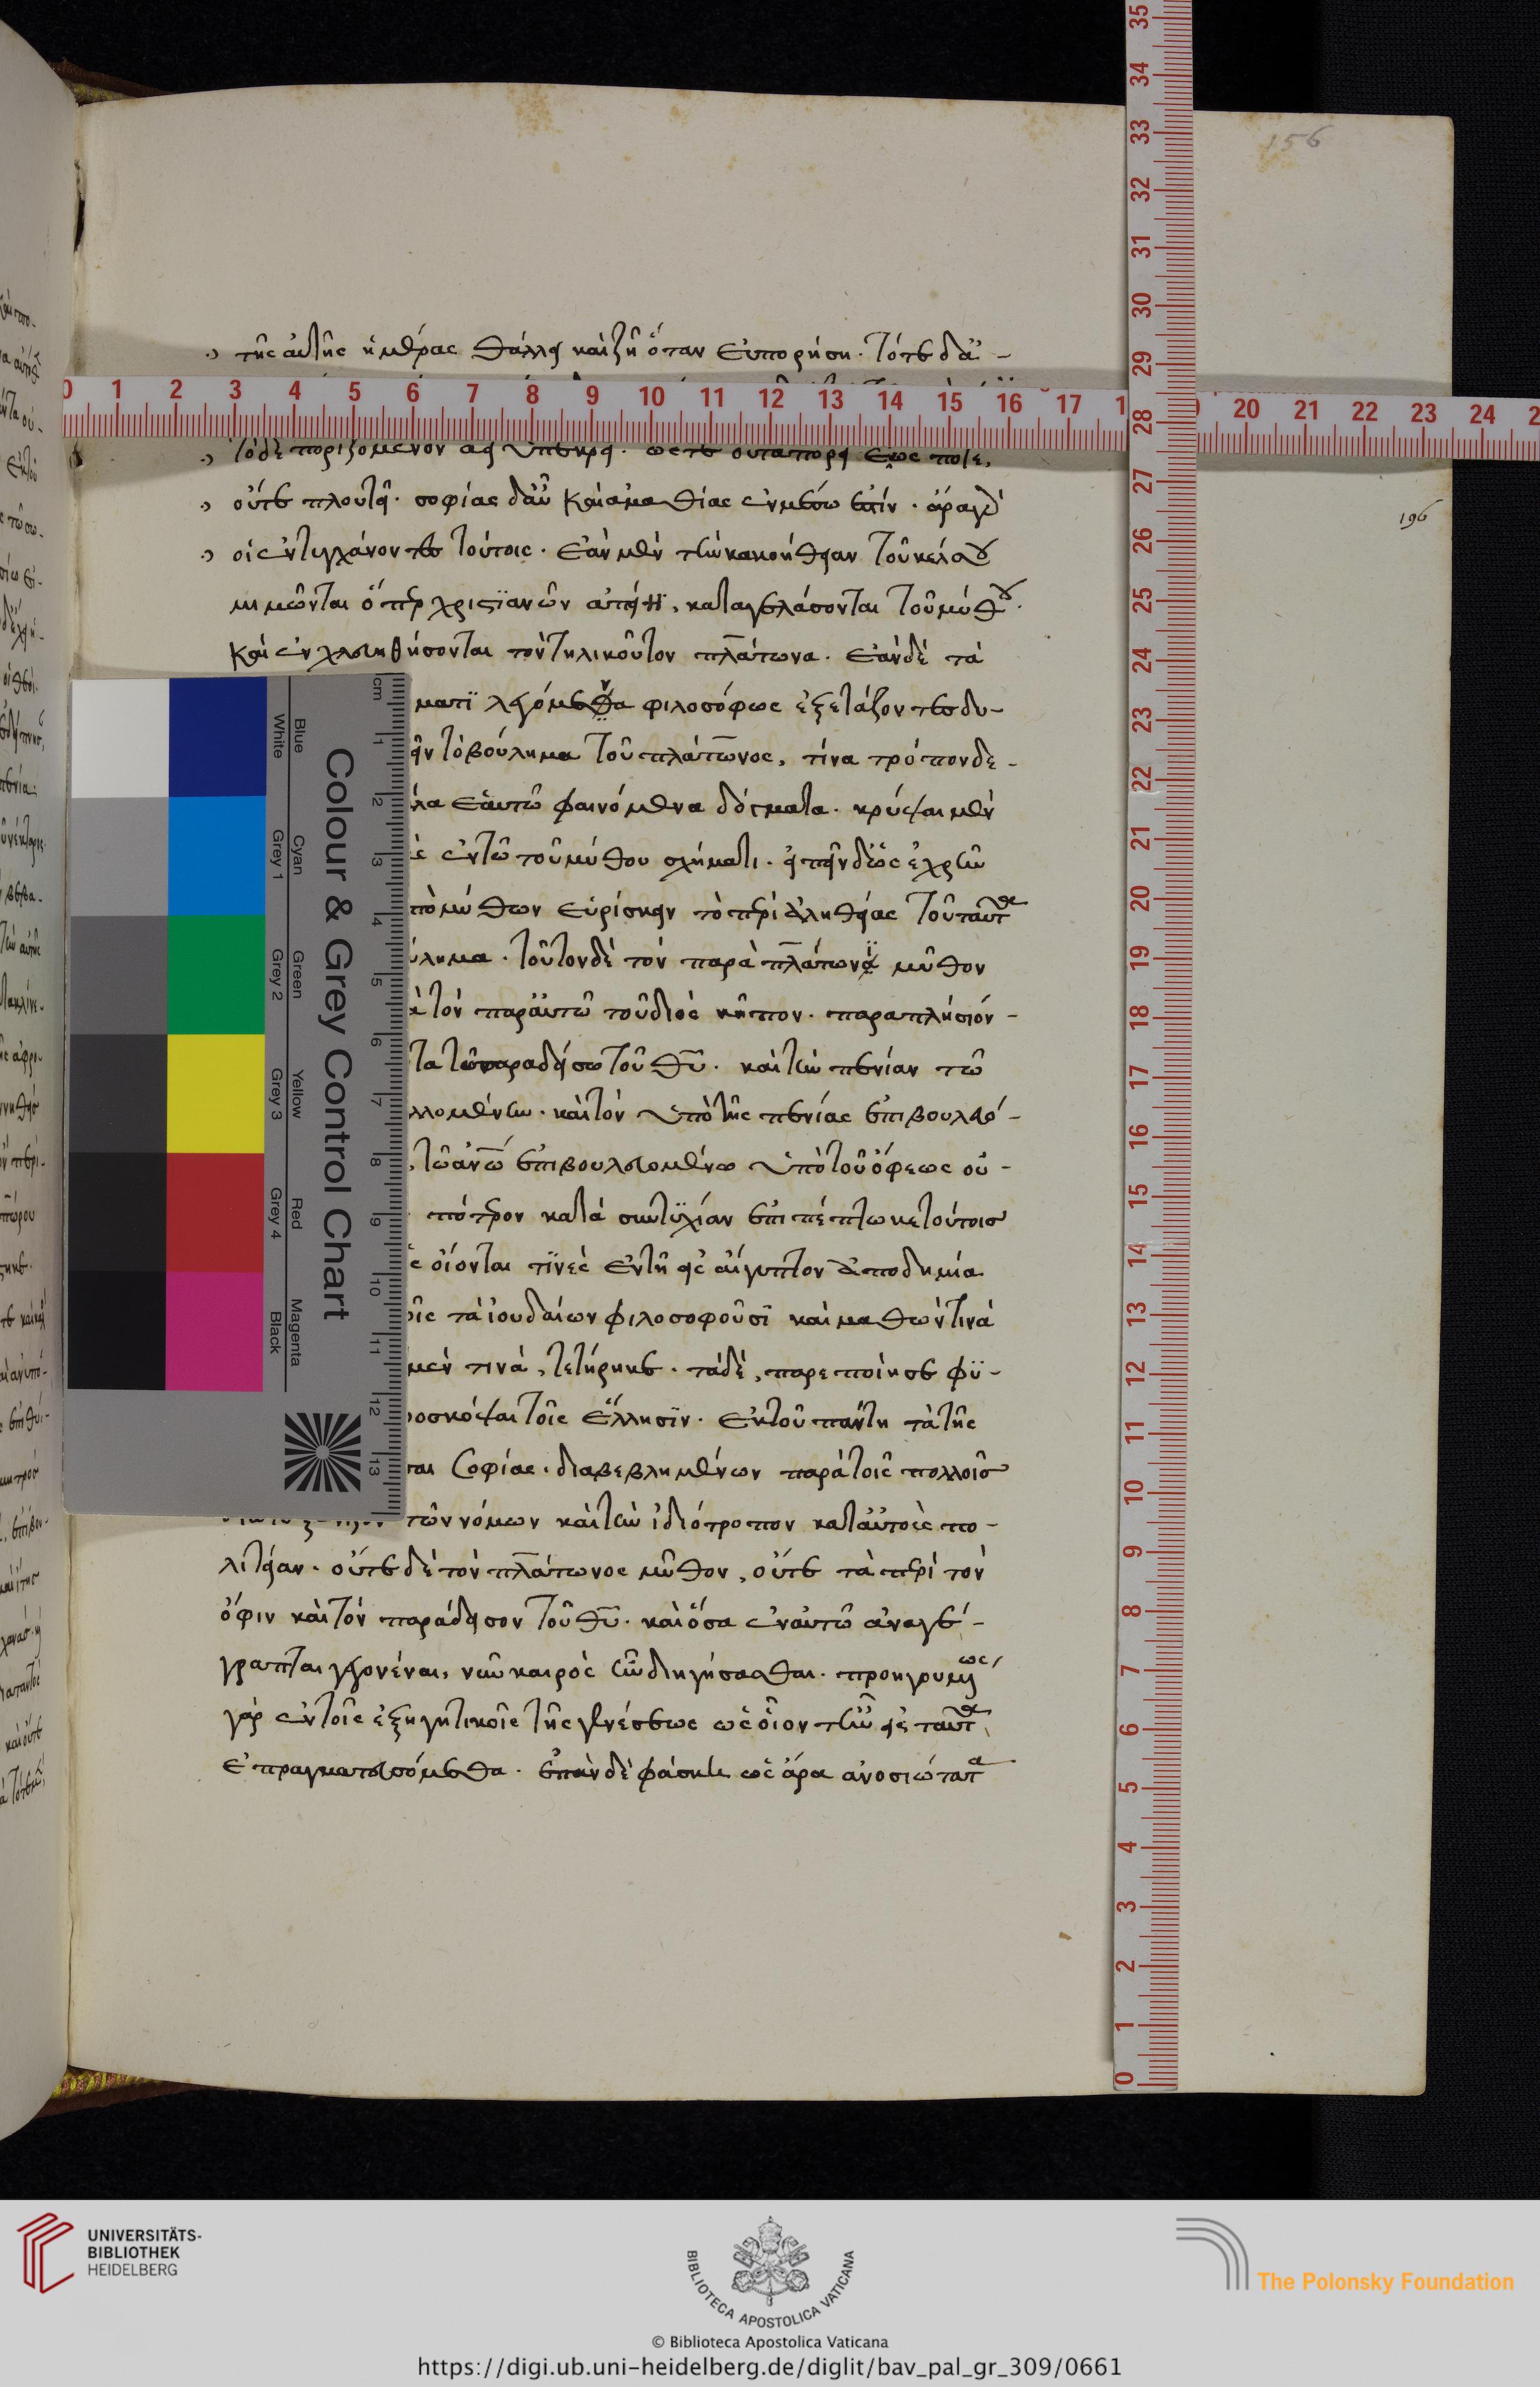 156
τῆς αὐτῆς ἡμέρας θάλλει καὶ ζῆ ὅταν εὐπορήση. τότε δὲ ἀ-
τὸ δὲ ποριζόμενον ἀεὶ ὑπεκρεῖ. ὥστε οὔτ ἀπορεῖ ἔρως ποτε,
οὔτε πλουτεῖ. σοφίας δ' αὖ καὶ ἀμαθίας ἐν μέσω ἐστίν. ἆρα γὰρ
οἱ ἐντυγχάνοντες τούτοις. ἐὰν μὲν τὴν κακοήθειαν τοῦ κέλσου
μιμῶνται ὅπερ χριστϊανῶν ἀπείη, καταγελάσονται τοῦ μύθου.
καὶ ἐν χλεύη θήσονται τὸν τηλικοῦτον πλάτωνα. ἐὰν δὲ τὰ
ματϊ λεγόμενα φιλοσόφως ἐξετάζοντες δυ-
εῖν τὸ βούλημα τοῦ πλάτωνος, τίνα τρόπον δε-
λα ἑαυτῶ φαινόμενα δόγματα. κρύψαι μὲν
ἐν τῶ τοῦ μύθου σχήματι. εἰπεῖν δὲ ὡς ἐχρῆν
πὸ μύθων εὑρίσκειν τὸ περὶ ἀληθείας τοῦ ταῦτα
ύλημα. τοῦτον δὲ τὸν παρὰ πλάτωνϊ μῦθον
τὸν παρ' αὐτῶ τοῦ διὸς κῆπον. παραπλήσιόν-
τα τῶ παραδείσω τοῦ θυ. καὶ τὴν πενίαν τῶ
καὶ τὸν ὑπὸ τῆς πενίας ἐπιβουλευό-
τῶ ἀνω ἐπιβουλευομένω ὑπὸ τοῦ ὄφεως οὐ-
πότερον κατὰ συντϋχίαν ἐπιπέπτωκε τούτοις
οἴονται τϊνὲς ἐν τῆ εἰς αἴγυπτον ἀποδημία
οῖς τὰ ἰουδαίων φιλοσοφοῦσϊ καὶ μαθών τινὰ
μὲν τινὰ, τετήρηκε. τὰ δὲ, παρεποίησε φϋ-
οσκόψαι τοῖς ἕλλησϊν. ἐκ τοῦ πάντη τὰ τῆς
σοφίας. διαβεβλημένων παρὰ τοῖς πολλοῖς
τῶν νόμων καὶ τὴν ἰδιότροπον κατ' αὐτοὺς πο-
λιτείαν. οὔτε δὲ τὸν πλάτωνος μῦθον, οὔτε τὰ περὶ τὸν
ὄφιν καὶ τὸν παράδεισον τοῦ θυ. καὶ ὅσα ἐν αὐτῶ ἀναγέ-
γραπται γεγονέναι, νῦν καιρὸς ἦν διηγήσασθαι. προηγουμένως
γὰρ ἐν τοῖς ἐξηγητικοῖς τῆς γενέσεως ὡς οἷόν τ' ἦν εἰς ταῦτα
ἐπραγματευσόμεθα. ἐπὰν δὲ φάσκη ὡς ἄρα ἀνοσιώτατα
196
0 1 2 3 4 5 6 7 8 9 10 11 12 13 14 15 16 17 1 20 21 22 23 24 2
35
34
33
32
31
30
29
28
27
26
25
24
23
22
21
20
19
18
17
16
15
14
13
12
11
10
9
8
7
6
5
4
3
2
1
0
Colour & Grey Control Chart
Blue
Cyan
Green
Yellow
Red
Magenta
White
Grey 1
Grey 2
Grey 3
Grey 4
Black
cm 1 2 3 4 5 6 7 8 9 10 11 12 13
UNIVERSITÄTS-
BIBLIOTHEK
HEIDELBERG
BIBLIOTECA APOSTOLICA VATICANA
The Polonsky Foundation
© Biblioteca Apostolica Vaticana
https://digi.ub.uni-heidelberg.de/diglit/bav_pal_gr_309/0661